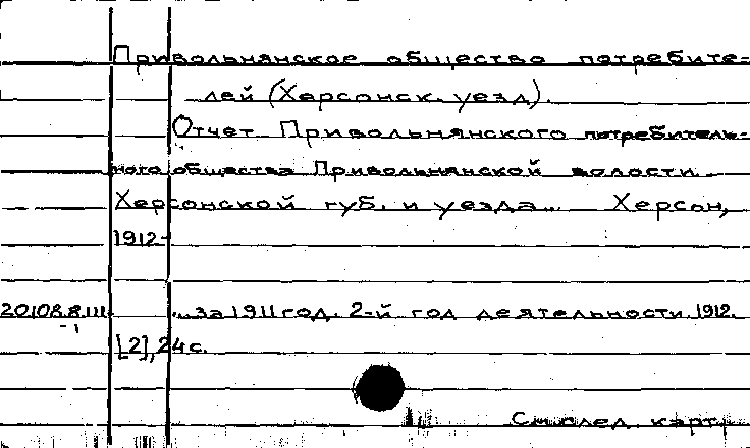 Привольнянское общество потребите-
лей (Херсонск. уезд).
Отчет Привольнянского потребитель-
ного общества Привольнянской волости
Херсонской губ. и уезда... Херсон,
1912-
20108.8.111. ...за 1911 год. 2-й год деятельности. 1912.
-1
[2], 24 с.
См. след. карт.